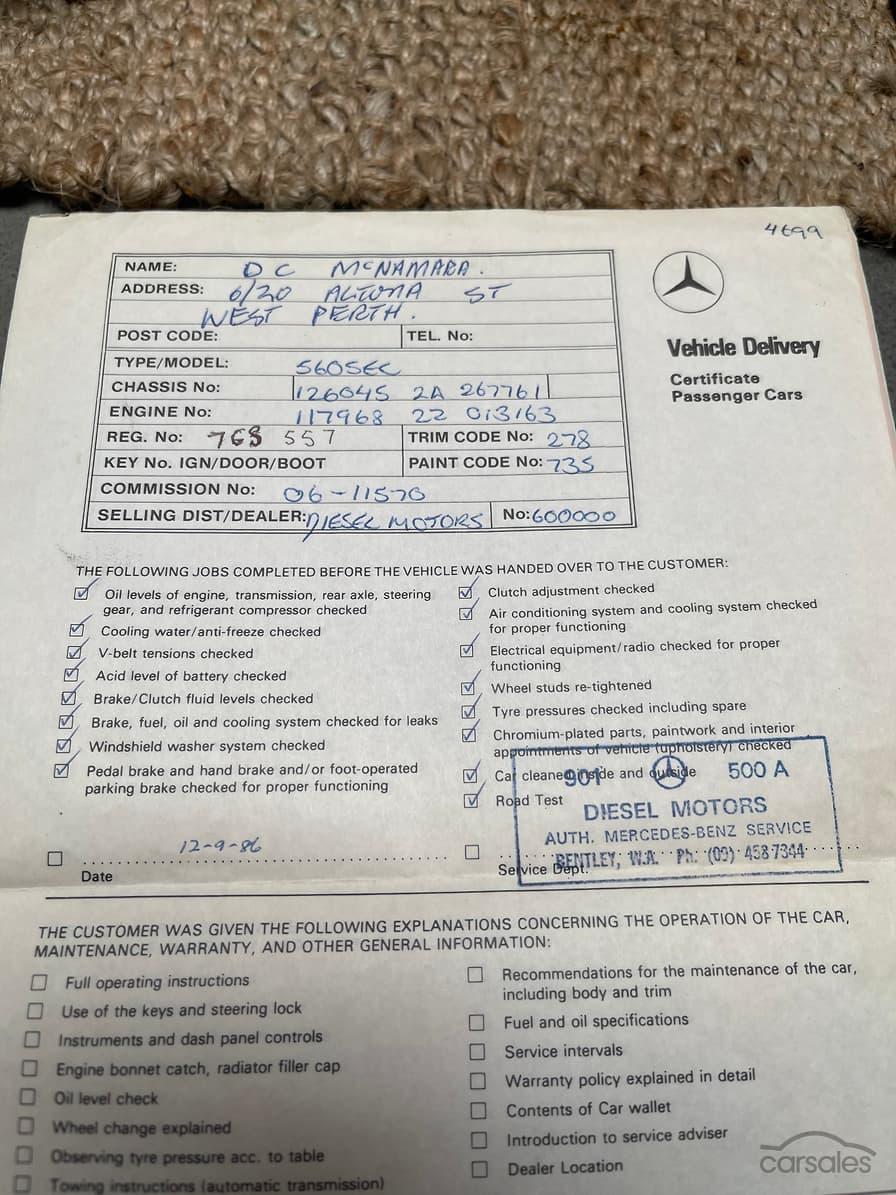 4699
NAME: D C McNAMARA.
ADDRESS: 6/20 ALTONA ST
WEST PERTH.
POST CODE: TEL. No:
TYPE/MODEL: 560SEC
CHASSIS No: 126045 2A 267761
ENGINE No: 117968 22 013163
REG. No: 768 557 TRIM CODE No: 278
KEY No. IGN/DOOR/BOOT PAINT CODE No: 735
COMMISSION No: 06-11570
SELLING DIST/DEALER: DIESEL MOTORS No: 600000
Vehicle Delivery
Certificate
Passenger Cars
THE FOLLOWING JOBS COMPLETED BEFORE THE VEHICLE WAS HANDED OVER TO THE CUSTOMER:
Oil levels of engine, transmission, rear axle, steering
gear, and refrigerant compressor checked
Cooling water/anti-freeze checked
V-belt tensions checked
Acid level of battery checked
Brake/Clutch fluid levels checked
Brake, fuel, oil and cooling system checked for leaks
Windshield washer system checked
Pedal brake and hand brake and/or foot-operated
parking brake checked for proper functioning
Clutch adjustment checked
Air conditioning system and cooling system checked
for proper functioning
Electrical equipment/radio checked for proper
functioning
Wheel studs re-tightened
Tyre pressures checked including spare
Chromium-plated parts, paintwork and interior
appointments of vehicle (upholstery) checked
Car cleaned inside and outside
Road Test
901 500 A
DIESEL MOTORS
AUTH. MERCEDES-BENZ SERVICE
BENTLEY, W.A. Ph: (09) 458 7344
12-9-86
Date
Service Dept.
THE CUSTOMER WAS GIVEN THE FOLLOWING EXPLANATIONS CONCERNING THE OPERATION OF THE CAR,
MAINTENANCE, WARRANTY, AND OTHER GENERAL INFORMATION:
Full operating instructions
Use of the keys and steering lock
Instruments and dash panel controls
Engine bonnet catch, radiator filler cap
Oil level check
Wheel change explained
Observing tyre pressure acc. to table
Towing instructions (automatic transmission)
Recommendations for the maintenance of the car,
including body and trim
Fuel and oil specifications
Service intervals
Warranty policy explained in detail
Contents of Car wallet
Introduction to service adviser
Dealer Location
carsales